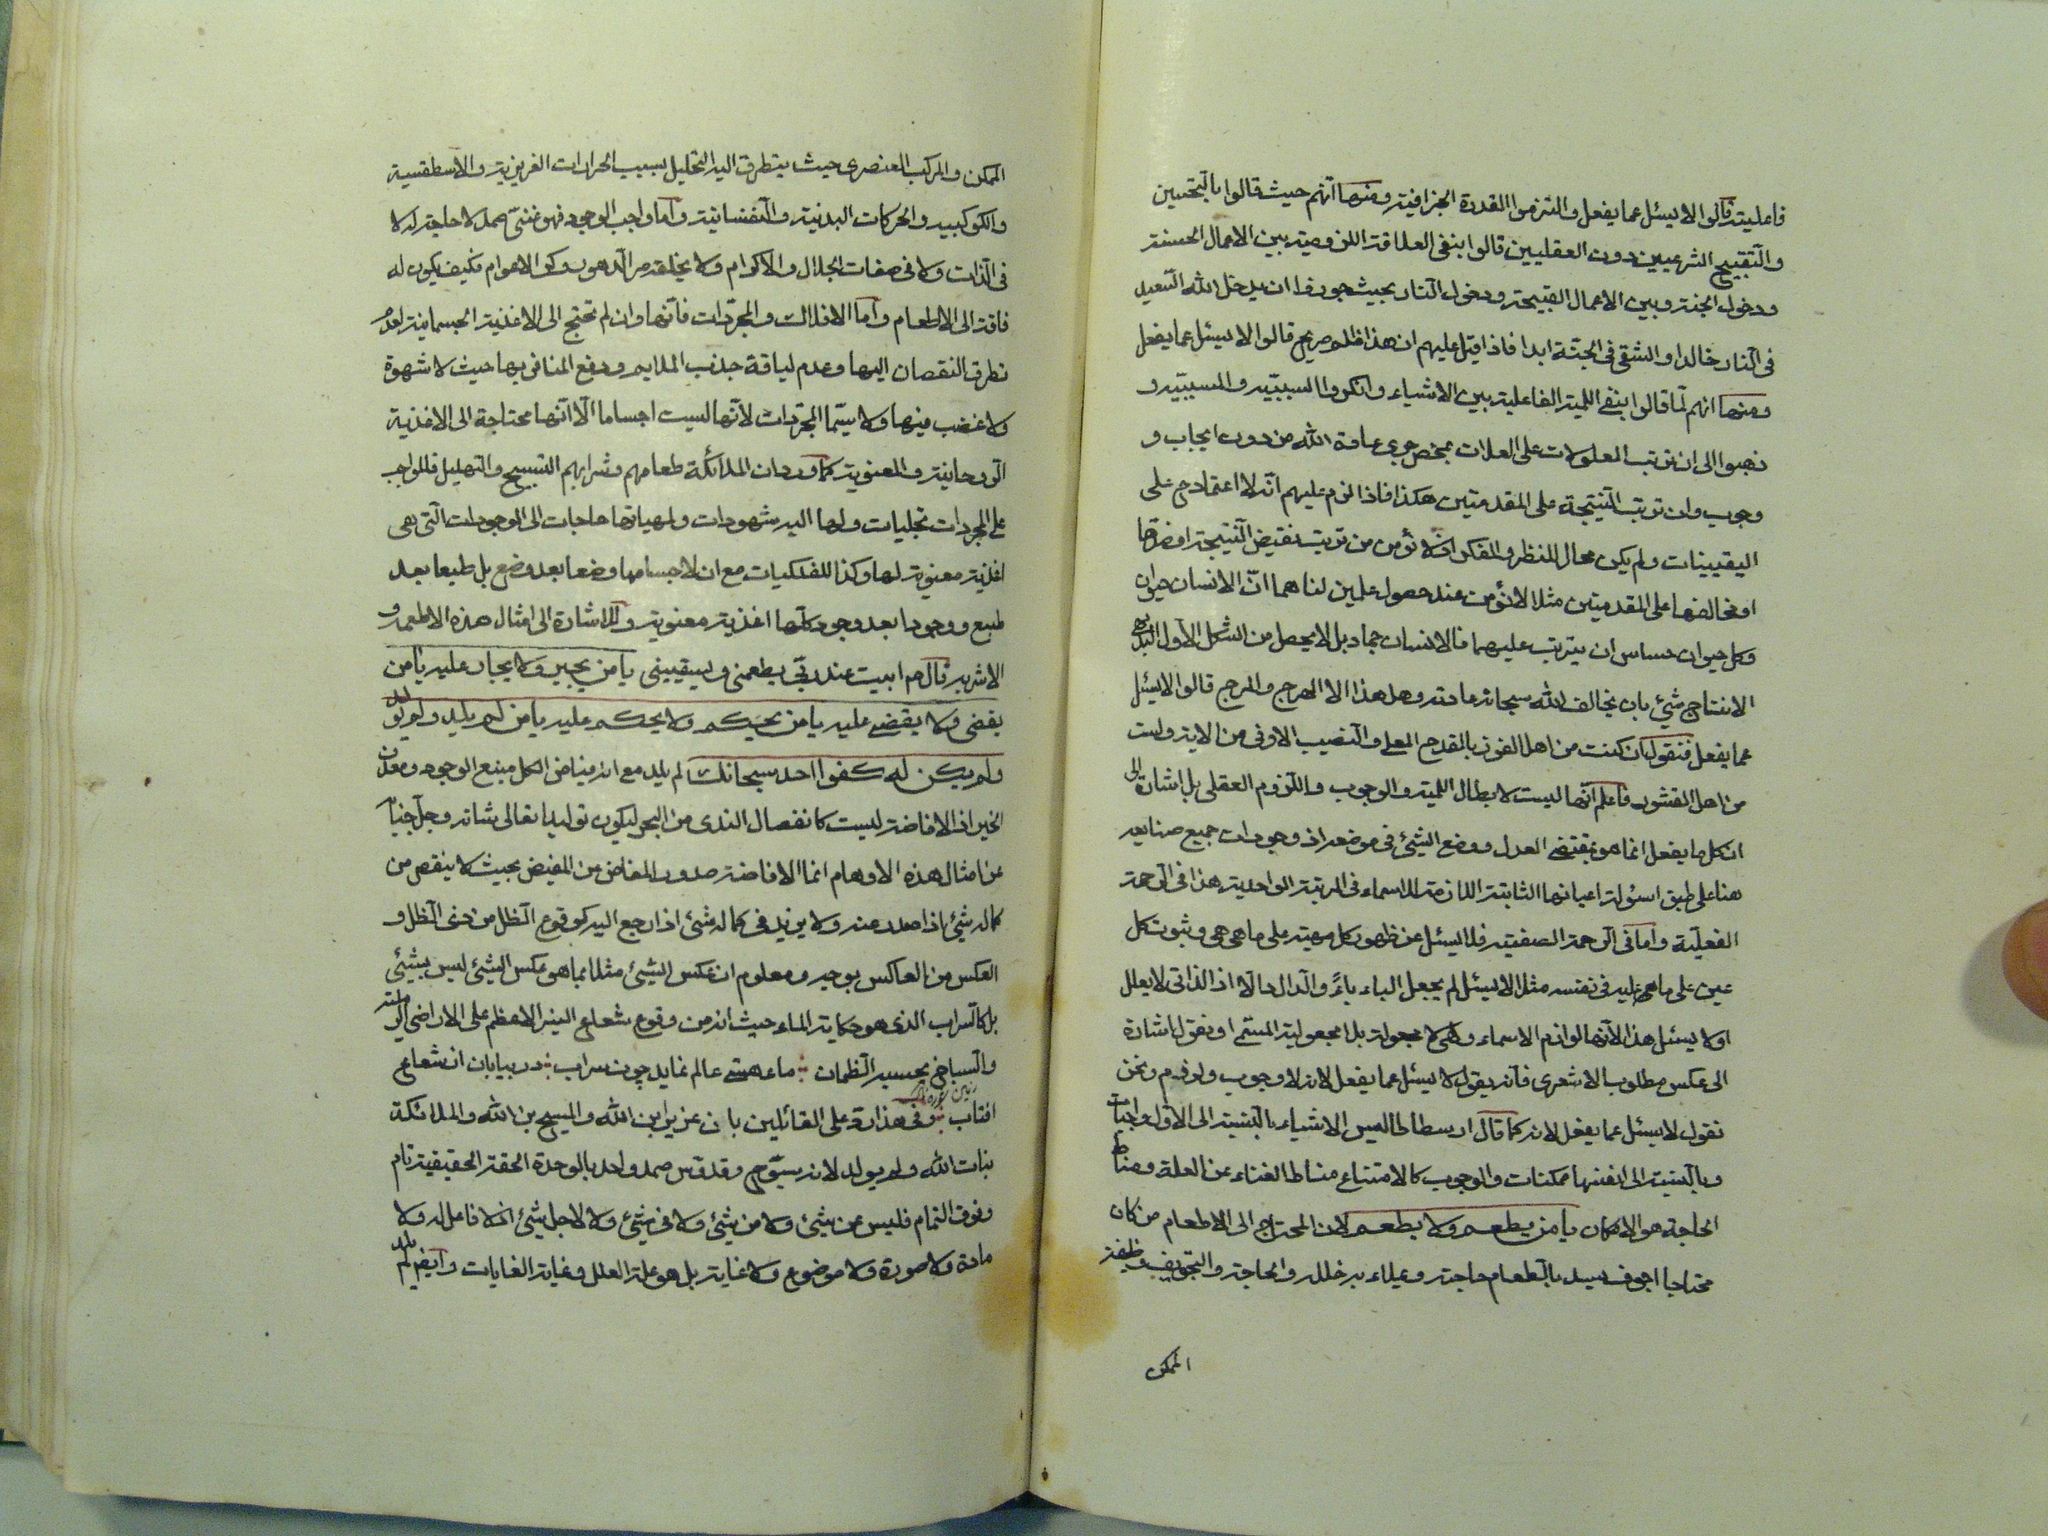 فاعلية قالوا لا يسئل عما يفعل والتزموا القدرة الجزافية ومنها انهم حيث قالوا بالتحسين
والتقبيح الشرعيين دون العقليين قالوا بنفى العلاقة اللزومية بين الاعمال الحسنة
ودخول الجنة وبين الاعمال القبيحة ودخول النار بحيث جوزوا ان يدخل الله السعيد
فى النار خالدا والشقى فى الجنة ابدا فاذا قيل عليهم ان هذا ظلم صريح قالوا لا يسئل عما يفعل
ومنها انهم لما قالوا بنفى اللمية الفاعلية بين الاشياء وانكروا السببية والمسببية و
ذهبوا الى ان ترتب المعلولات على العلات بمحض جرى عادة الله من دون ايجاب و
وجوب وان ترتب النتيجة على المقدمتين هكذا فاذا لزم عليهم انه لا اعتماد ح على
اليقينيات ولم يكن مجال للنظر والفكر اذ لا نؤمن من ترتب نقيض النتيجة او ضدها
او مخالفها على المقدمتين مثلا لا نؤمن عند حصول علمين لنا هما ان الانسان حيوان
وكل حيوان حساس ان يترتب عليهما فالانسان جماد بل لا يحصل من الشكل الاول البديهى
الانتاج شيئ بان يخالف الله سبحانه عادته وهل هذا الا الهرج والمرج قالوا لا يسئل
عما يفعل فنقول ان كنت من اهل الفوز بالقدح المعلى والنصيب الاوفى من الاية ولست
من اهل القشور فاعلم انها ليست لابطال اللمية والوجوب واللزوم العقلى بل اشارة الى
ان كل ما يفعل انما هو بمقتضى العدل ووضع الشيئ فى موضعه اذ وجودات جميع صنايعه
هنا على طبق اسؤلة اعيانها الثابتة اللازمة للاسماء فى المرتبة الواحدية هذا فى الرحمة
الفعلية واما فى الرحمة الصفتية فلا يسئل عن ظهور كل مهية على ما هى هى وثبوت كل
عين على ما هى عليه فى نفسه مثلا لا يسئل لم يجعل الباء باءً والدال دالا اذ الذاتى لا يعلل
او لا يسئل هذا لانها لوازم الاسماء وهى لا مجعولة بل لا مجعولية المسمى او نقول اشارة
الى عكس مطلوب الاشعرى فانه يقول لا يسئل عما يفعل لانه لا وجوب ولزوم ونحن
نقول لا يسئل عما يفعل لانه كما قال ارسطاطاليس الاشياء بالنسبة الى الاول واجبات
وبالنسبة الى انفسها ممكنات والوجوب كالامتناع مناط الغناء عن العلة ومناط
الحاجة هو الامكان يا من يطعم ولا يطعم لان المحتاج الى الاطعام من كان
محتاجا اجوف يسد بالطعام حاجته ويملاء به خلله والحاجة والتجويف وظيفة
الممكن
الممكن والمركب العنصرى حيث يتطرق اليه التحليل بسبب الحرارات الغريزية والاسطقسية
والكوكبية والحركات البدنية والنفسانية واما واجب الوجود فهو غنى صمد لا حاجة له لا
فى الذات ولا فى صفات الجلال والاكرام ولا يخلقه مر الدهور وكر الاعوام فكيف يكون له
فاقة الى الاطعام واما الافلاك والمجردات فانها وان لم تحتج الى الاغذية الجسمانية لعدم
تطرق النقصان اليها وعدم لياقة جذب الملايم ودفع المنافى بها حيث لا شهوة
ولا غضب فيها ولا سيما المجردات لانها ليست اجساما الا انها محتاجة الى الاغذية
الروحانية والمعنوية كما ورد ان الملائكة طعامهم وشرابهم التسبيح والتهليل فللواجب
على المجردات تجليات ولها اليه شهودات ولمهياتها حاجات الى الوجودات التى هى
اغذية معنوية لها وكذا للفلكيات مع ان لاجسامها وضعا بعد وضع بل طبعا بعد
طبع ووجودا بعد وجود كلها اغذية معنوية وللاشارة الى امثال هذه الاطعمة و
الاشربة قال ص ابيت عند ربى يطعمنى ويسقينى يا من يجير ولا يجار عليه يا من
يقضى ولا يقضى عليه يا من يحكم ولا يحكم عليه يا من لم يلد ولم يولد
ولم يكن له كفوا احد سبحانك لم يلد مع انه فياض الكل منبع الوجود ومعدن
الخير اذ الافاضة ليست كانفصال الندى من البحر ليكون توليدا تعالى شانه وجل جنابه
عن امثال هذه الاوهام انما الافاضة صدور المفاض من المفيض بحيث لا ينقص من
كماله شيئ اذا صدر عنه ولا يزيد فى كماله شيئ اذا رجع اليه كوقوع الظل من ذى الظل و
العكس من العاكس بوجه ومعلوم ان عكس الشيئ مثلا بما هو عكس الشيئ ليس بشيئ
بل كالسراب الذى هو حكاية الماء حيث انه من وقوع شعاع النير الاعظم على الاراضى الرملة
والسباخ يحسبه الظمان ماء هستى عالم نمايد چون سراب در بيابان از شعاع
افتاب وفى هذا رد على القائلين بان عزير ابن الله والمسيح بن الله والملائكة
بنات الله ولم يولد لانه سبوح وقدوس صمد واحد بالوحدة الحقة الحقيقية تام
وفوق التمام فليس عن شيئ ولا من شيئ ولا فى شيئ ولا لاجل شيئ اذ لا فاعل له ولا
مادة ولا صورة ولا موضوع ولا غاية بل هو علة العلل وغاية الغايات وايضا لم يلد